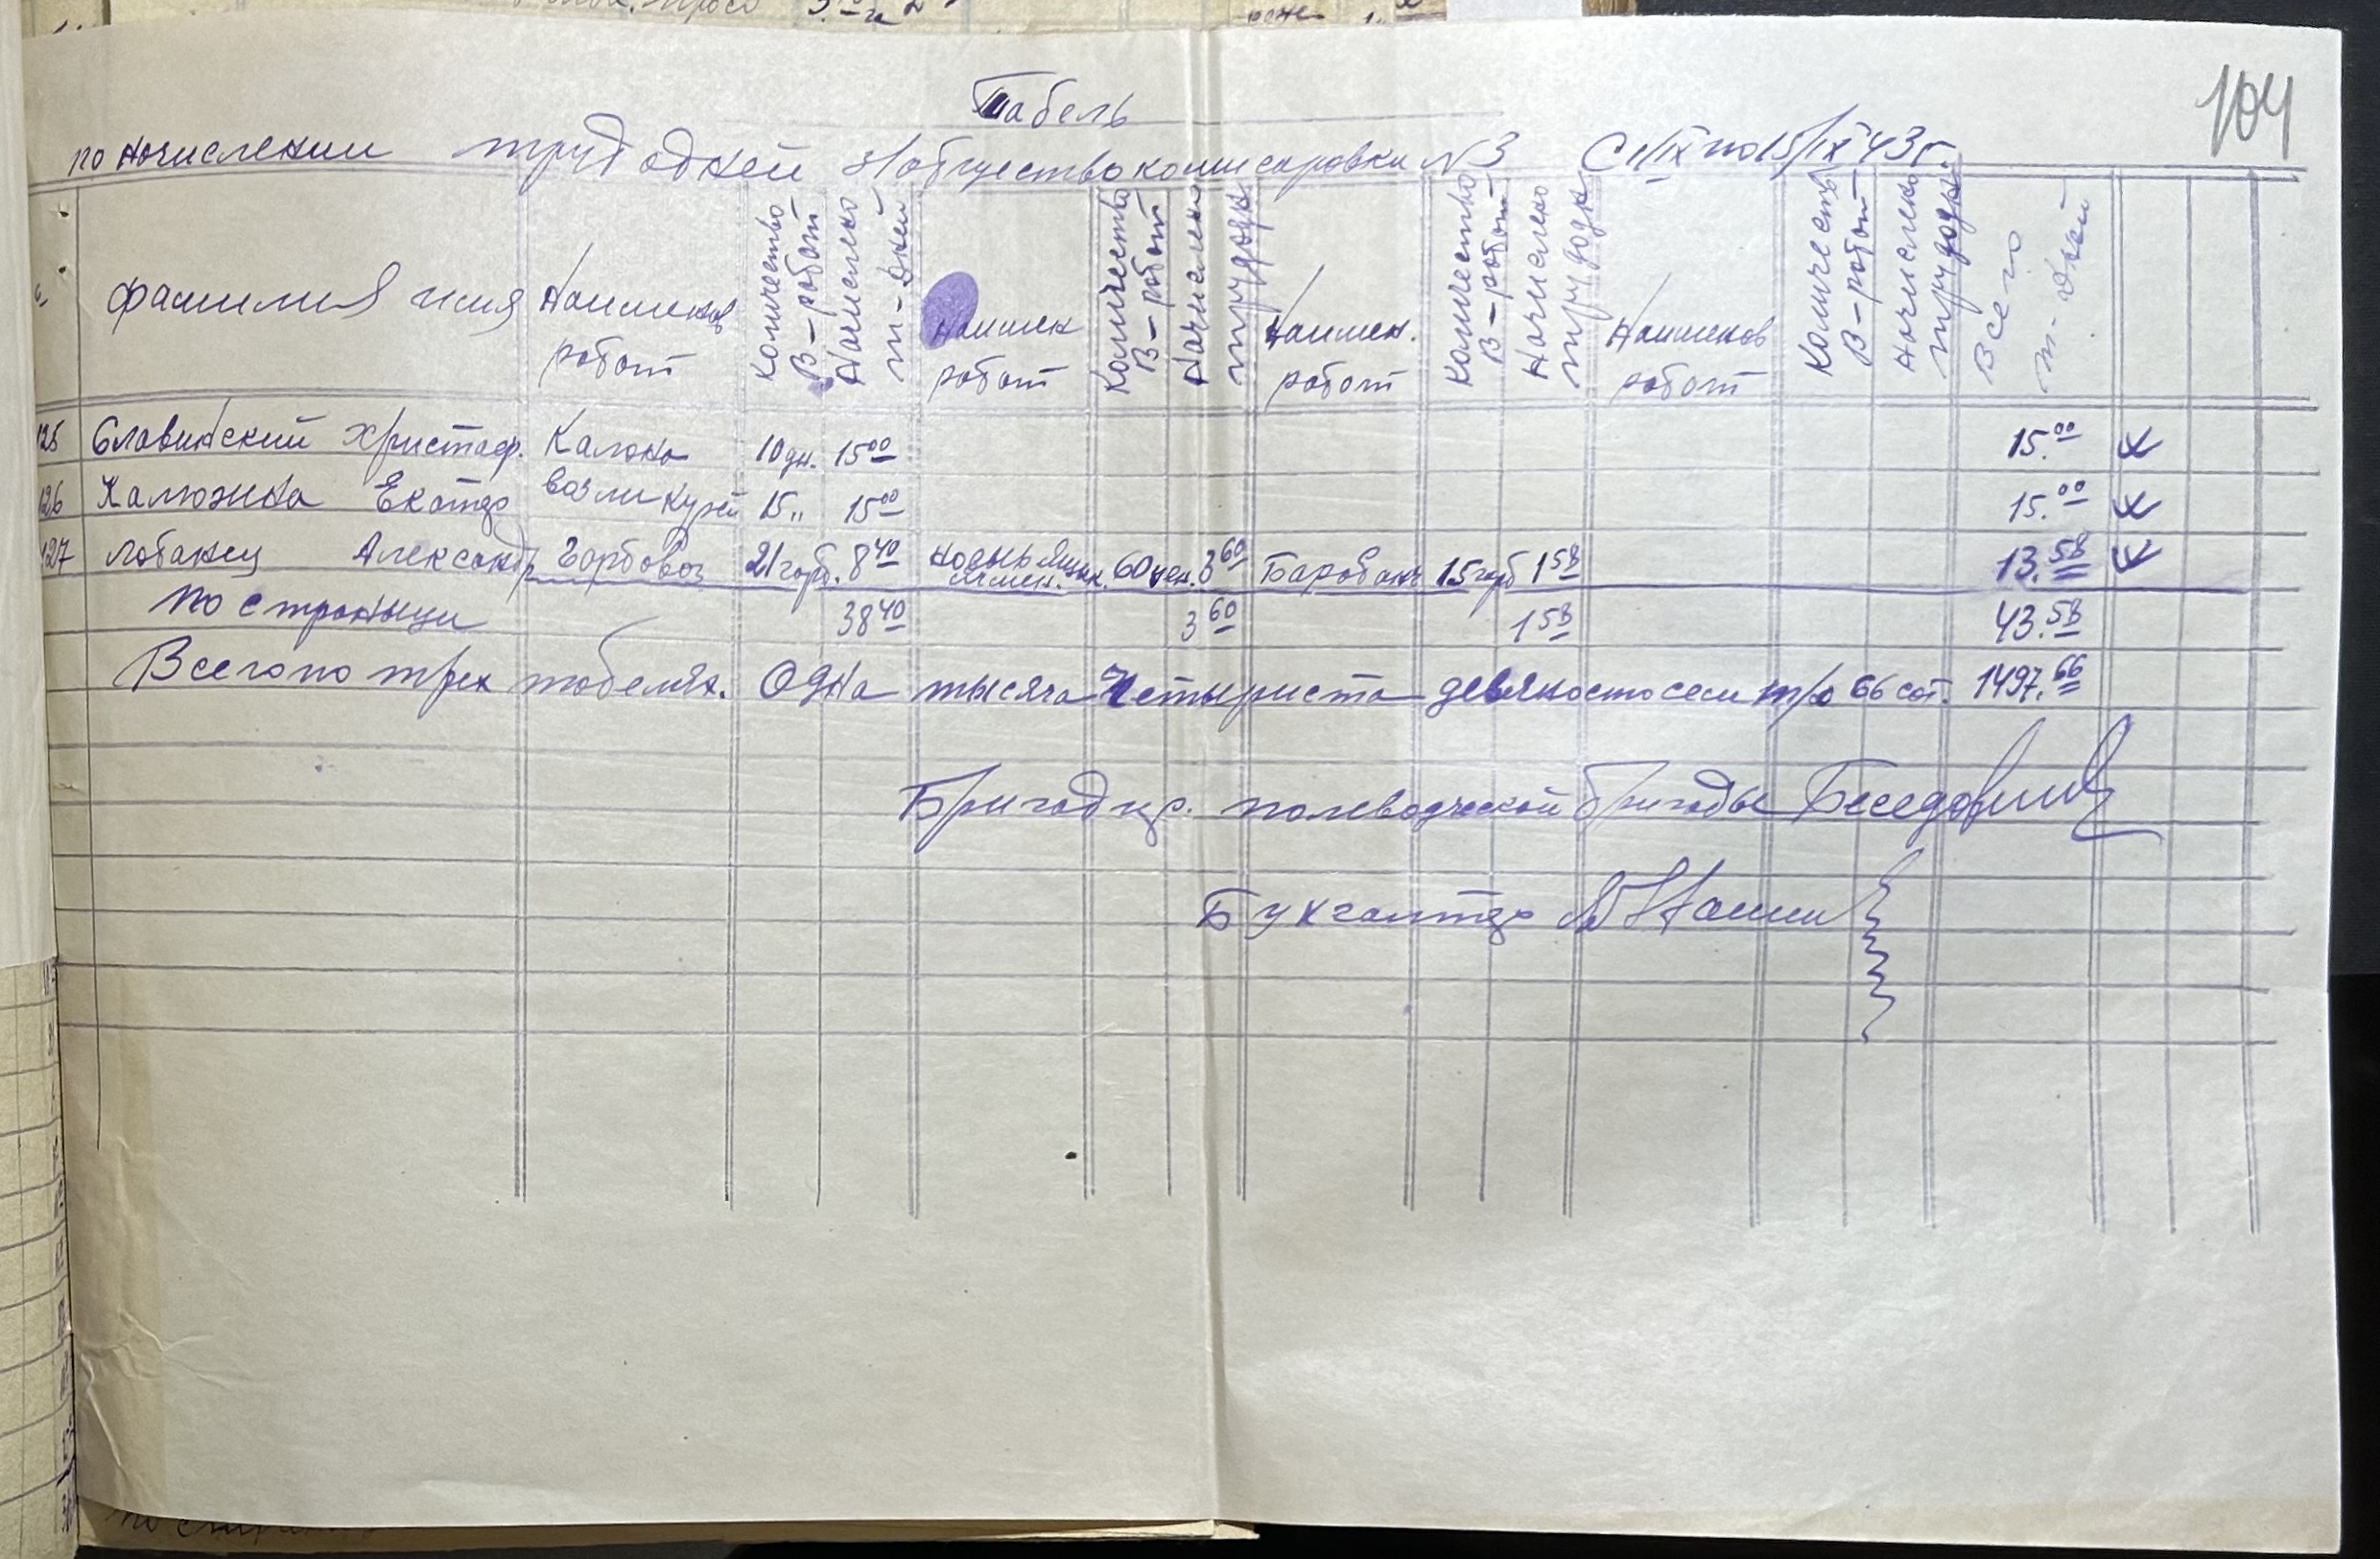 104
Табель
по начислении трудодней Ν общество комисаровки N 3 С 1/IX по 15/IX 43 г.
фамилия имя Наименов работ Количество В-работ Начислено т-дней Наимен работ Количество В-работ Начислено трудодн Наимен. работ Количество В-работ Начислено трудодн Наименов работ Количеств В-работ Начислено трудодн Всего т-дней
125 Славинский Христаф. 10 дн. 15 00 15.00
126 Калюжна Екатер возли кузни 15 " 15 00 15.00
127 Лобанец Александр Горбовоз 21 горб. 8 40 60 цен. 3 60 15 горб 1 58 13.58
По страныци 38 40 3 60 1 58 43.58
Всего по трех табелях. Одна тысяча четыриста девяносто сем тр/д 66 сот. 1497.66
Бригадир. полеводческой бригады
Бухгалтер